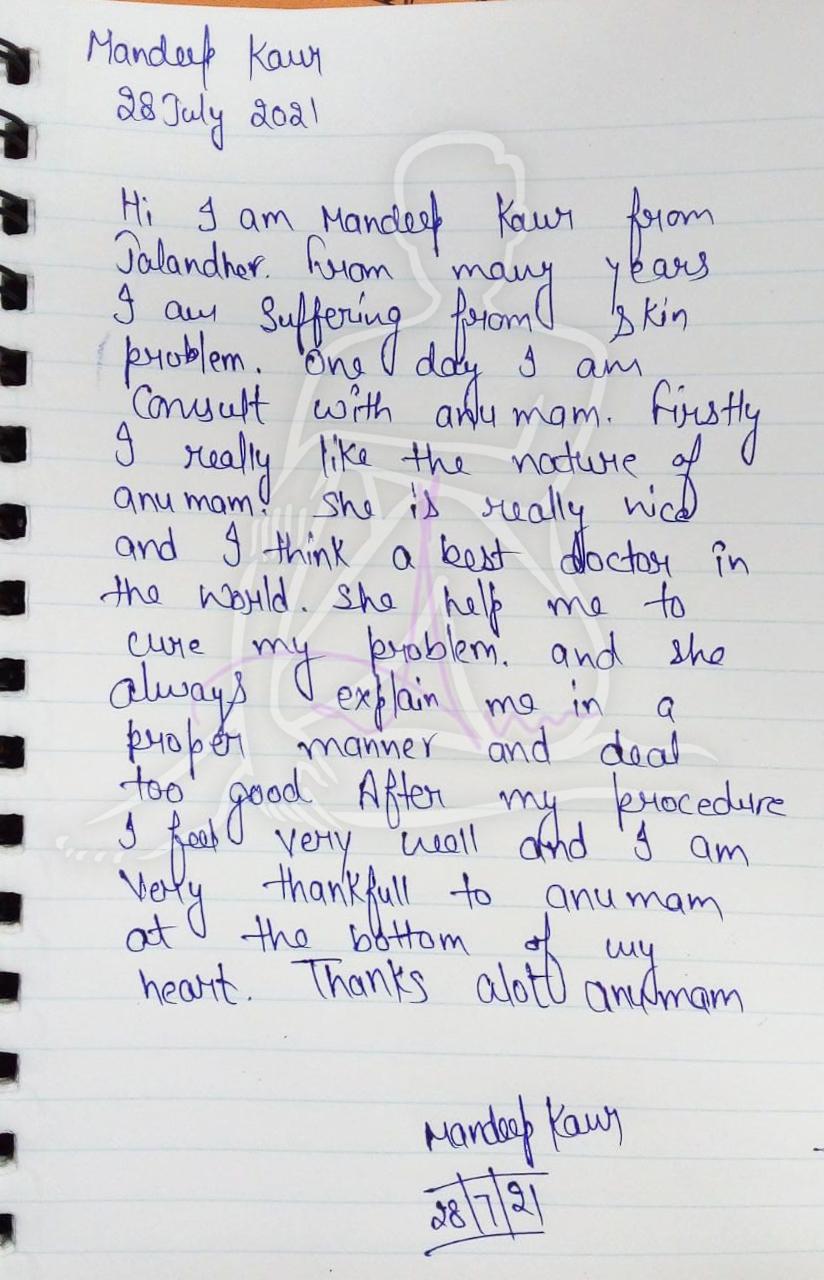 Mandeep Kaur
28 July 2021
Hi I am Mandeep Kaur from
Jalandher. From many years
I am Suffering from Skin
problem. One day I am
Consult with anu mam. Firstly
I really like the nature of
anu mam. She is really nice
and I think a best doctor in
the world. She help me to
cure my problem. and she
always explain me in a
proper manner and deal
too good After my procedure
I feel very well and I am
Very thankfull to anu mam
at the bottom of my
heart. Thanks alott anu mam
Mandeep Kaur
28/7/21